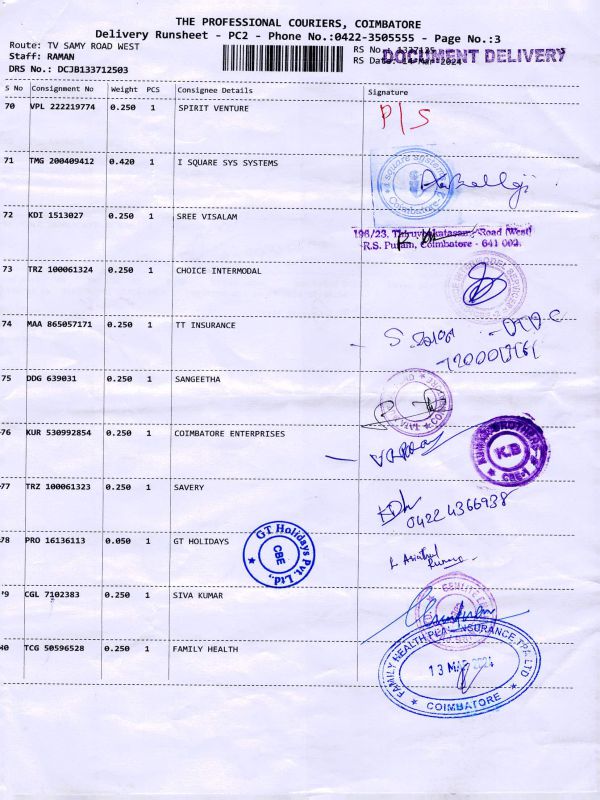 THE PROFESSIONAL COURIERS, COIMBATORE
Delivery Runsheet - PC2 - Phone No.:0422-3505555 - Page No.:3
Route: TV SAMY ROAD WEST
Staff: RAMAN
DRS No.: DCJB133712503
RS No.: 1337125
RS Date: 14-Mar-2024
DOCUMENT DELIVERY
S No Consignment No Weight PCS Consignee Details Signature
70 VPL 222219774 0.250 1 SPIRIT VENTURE
P/S
71 TMG 200409412 0.420 1 I SQUARE SYS SYSTEMS
I square systems
Coimbatore-2
72 KDI 1513027 0.250 1 SREE VISALAM
196/23, Road (West)
R.S. Puram, Coimbatore - 641 002.
73 TRZ 100061324 0.250 1 CHOICE INTERMODAL
74 MAA 865057171 0.250 1 TT INSURANCE
75 DDG 639031 0.250 1 SANGEETHA
76 KUR 530992854 0.250 1 COIMBATORE ENTERPRISES
BROTHERS
K.B
CBE-1
77 TRZ 100061323 0.250 1 SAVERY
0422 4366938
78 PRO 16136113 0.050 1 GT HOLIDAYS
GT Holidays Pvt. Ltd.,
CBE
79 CGL 7102383 0.250 1 SIVA KUMAR
80 TCG 50596528 0.250 1 FAMILY HEALTH
FAMILY HEALTH PLAN INSURANCE TPA LTD
13 MAR 2024
COIMBATORE